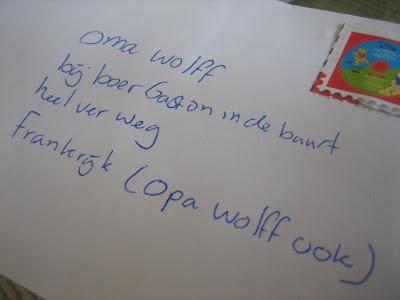 oma wolff
bij boer Gaston in de buurt
heel ver weg
Frankrijk (Opa wolff ook)